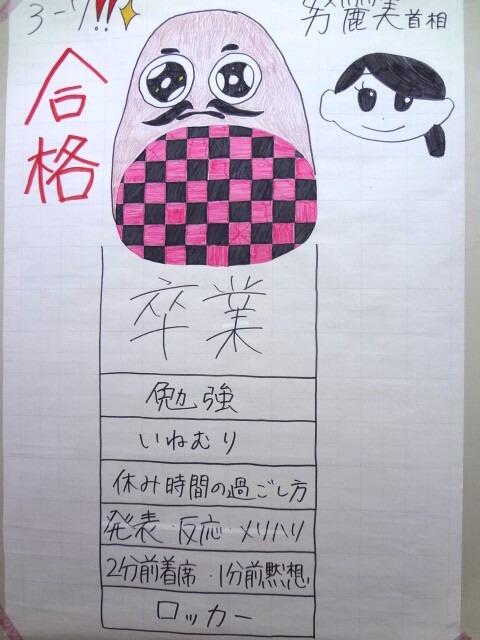 合格
首相
卒業
勉強
いねむり
休み時間の過ごし方
発表・反応・メリハリ
2分前着席・1分前黙想
ロッカー